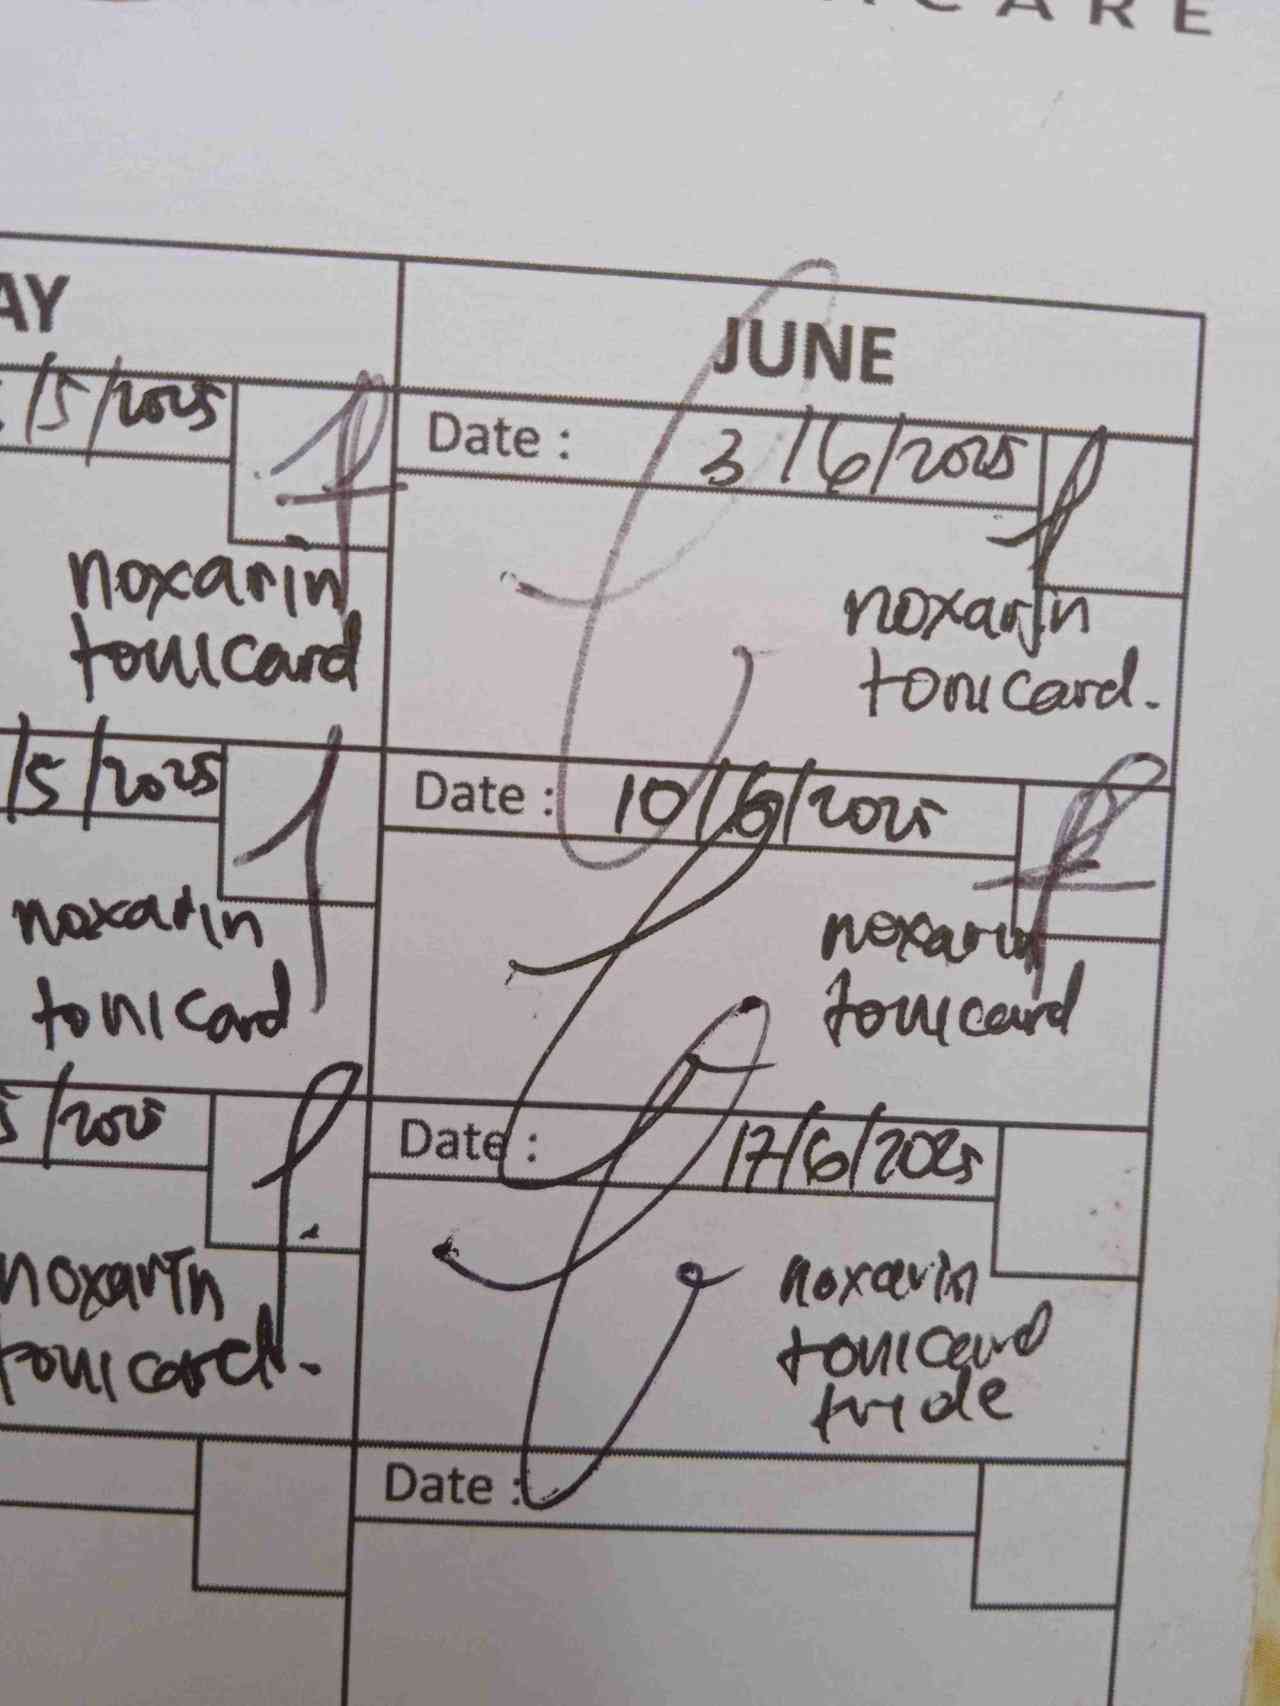 CARE
AY
JUNE
/5/2025
Date : 3/6/2025
noxarin
tonicard
noxarin
tonicard.
/5/2025
Date : 10/6/2025
noxarin
tonicard
noxarin
tonicard
5/2025
Date : 17/6/2025
noxarin
tonicard.
noxarin
tonicard
tride
Date :